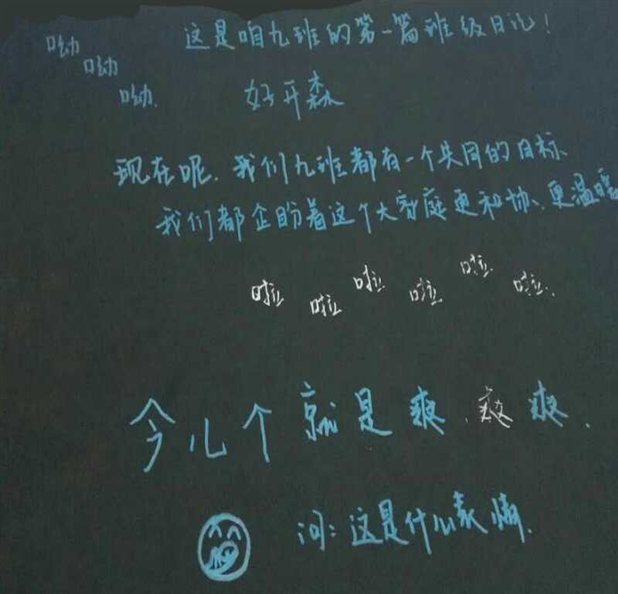 呦 呦 呦
这是咱九班的第一篇班级日记！
好开森
现在呢，我们九班都有一个共同的目标、
我们都企盼着这个大家庭更和协、更温暖
啦 啦 啦 啦 啦 啦.
今儿个就是爽、爽爽.
问：这是什么表情.